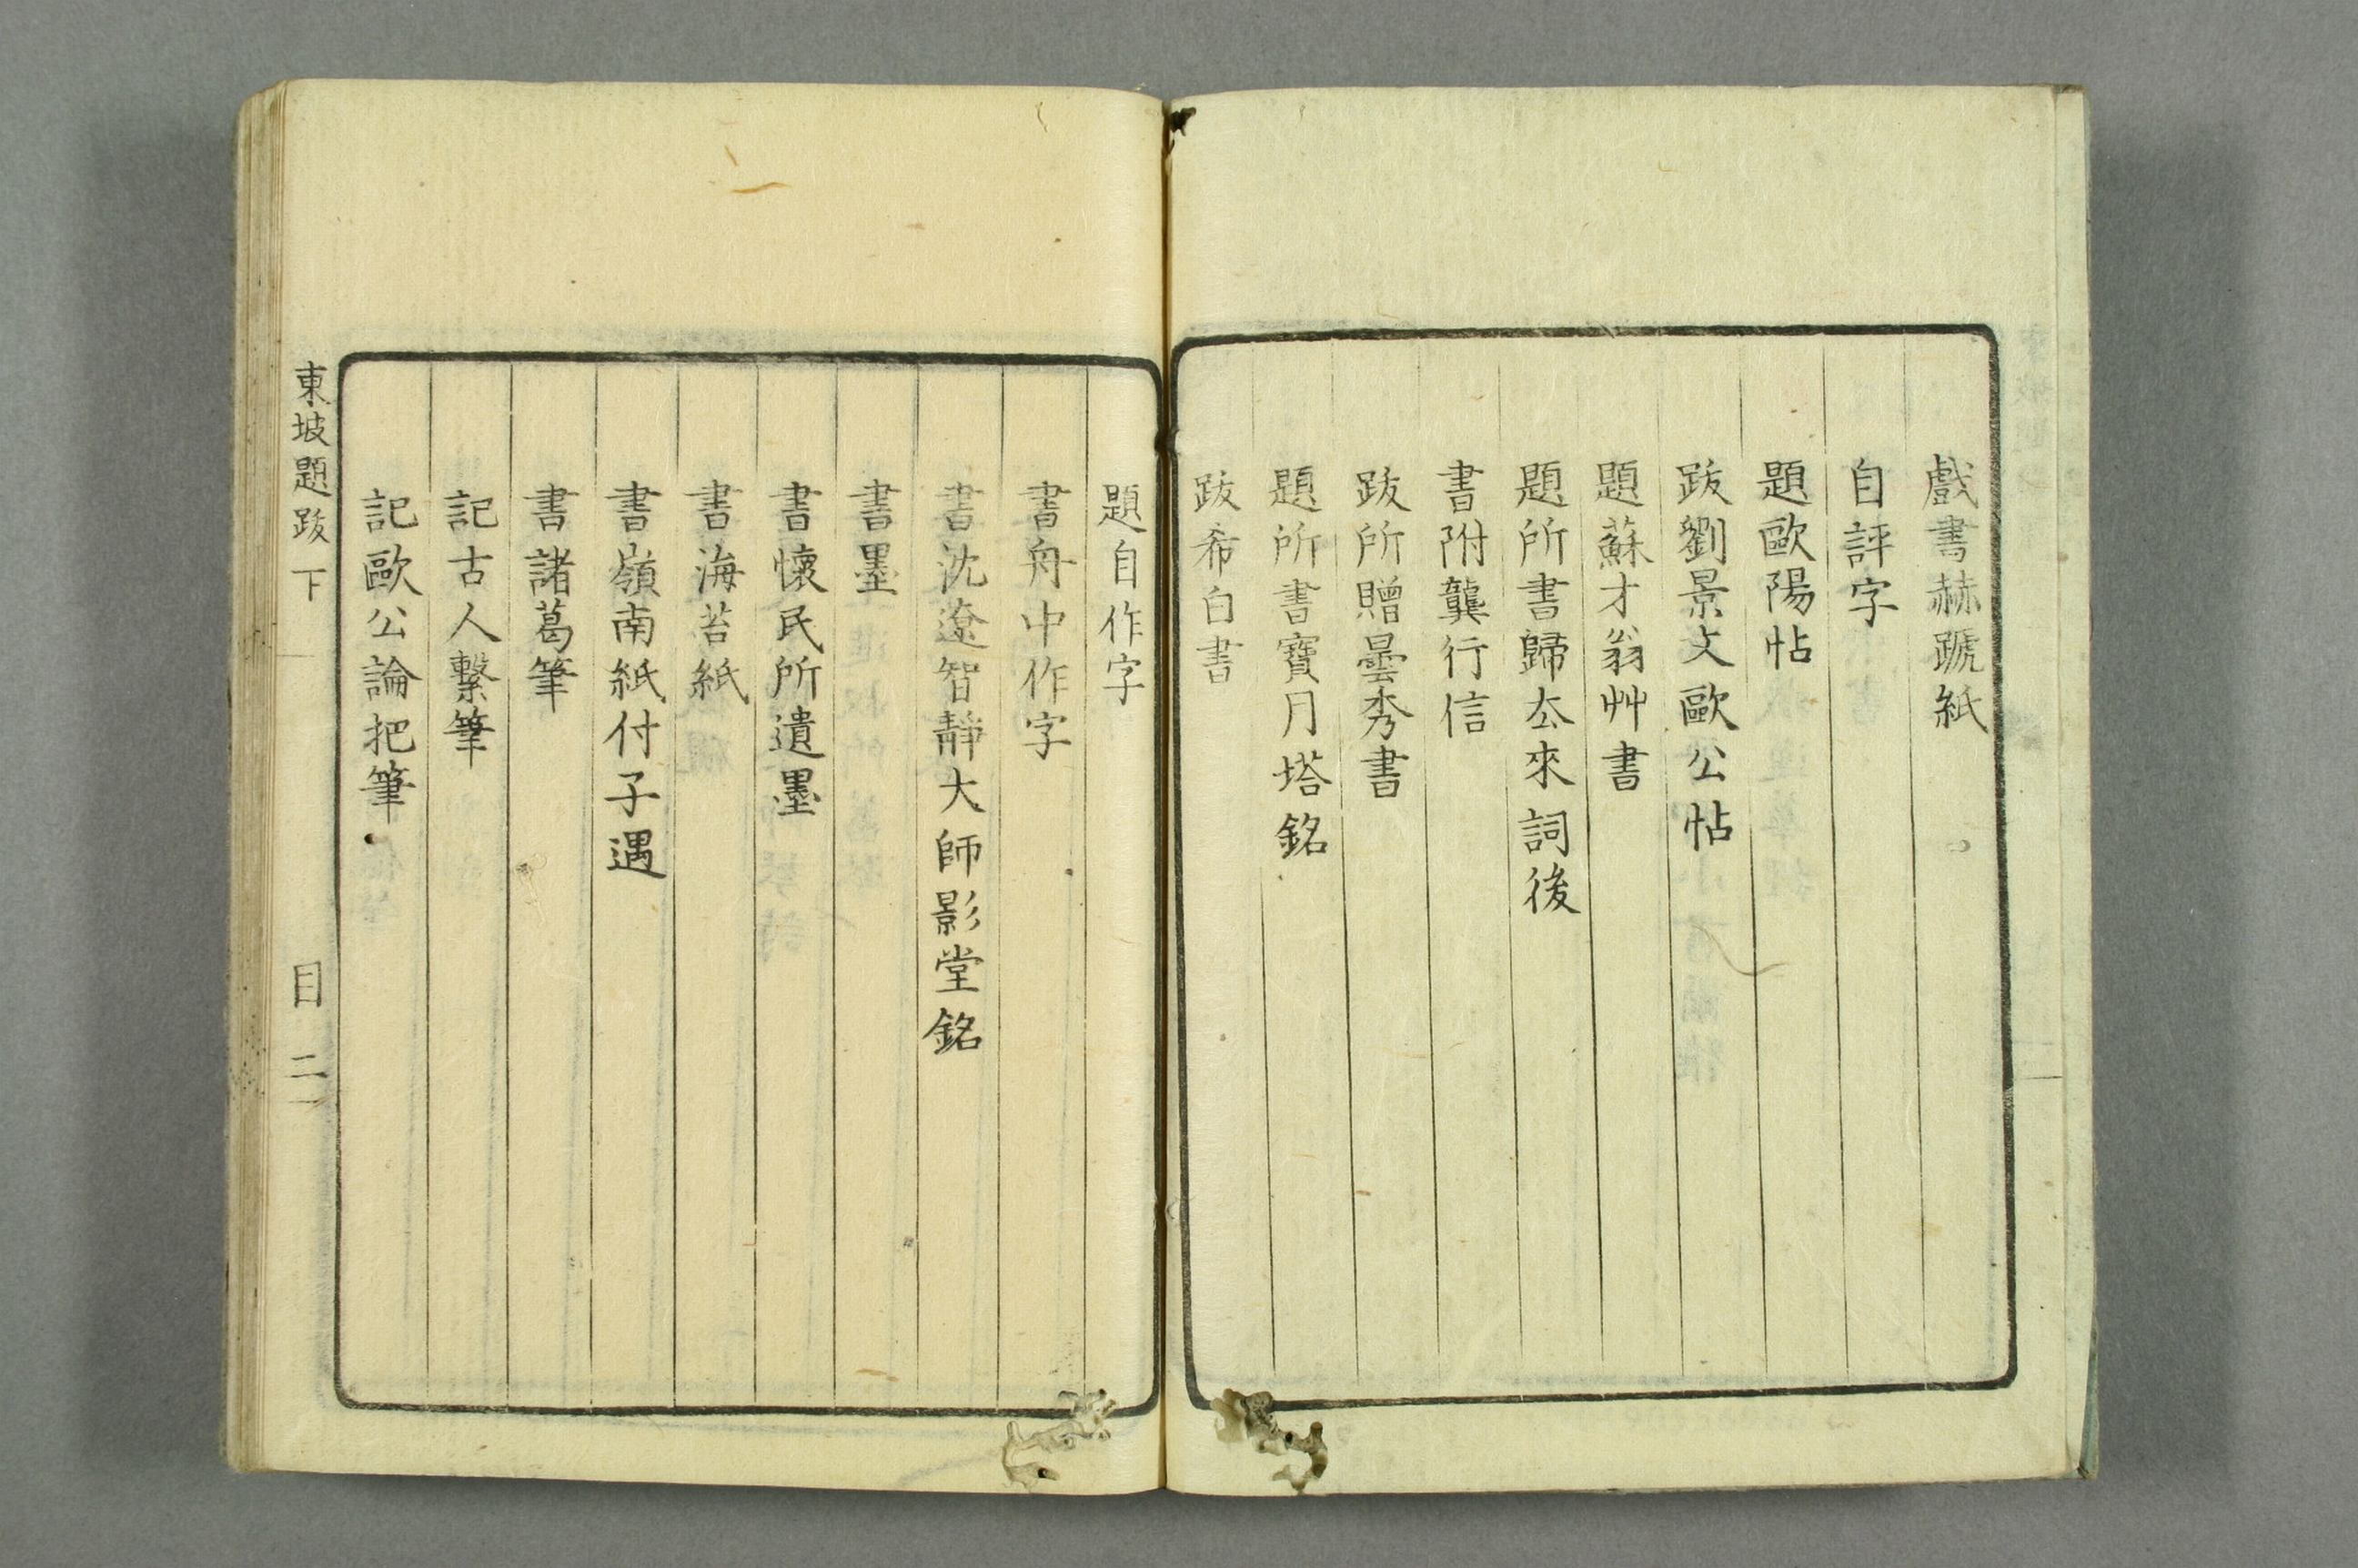 戲書赫蹏紙
自評字
題歐陽帖
跋劉景文歐公帖
題蘇才翁艸書
題所書歸厺來詞後
書附龔行信
跋所贈曇秀書
題所書寶月塔銘
跋希白書
題自作字
書舟中作字
書沈遼智靜大師影堂銘
書墨
書懷民所遺墨
書海苔紙
書嶺南紙付子遇
書諸葛筆
記古人繫筆
記歐公論把筆
東坡題跋 下 目 二